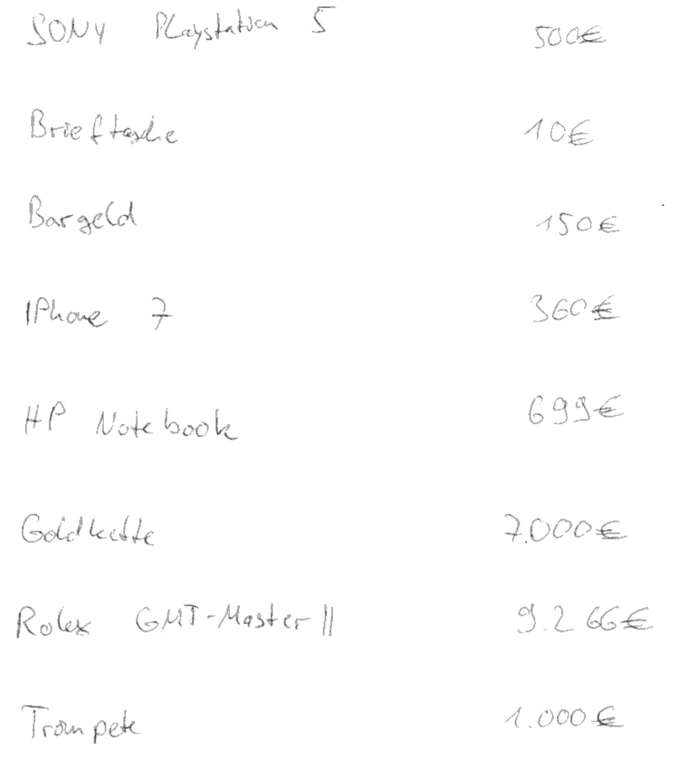 SONY Playstation 5 500€
Brieftasche 10€
Bargeld 150€
IPhone 7 360€
HP Notebook 699€
Goldkette 7.000€
Rolex GMT-Master II 9.266€
Trompete 1.000€